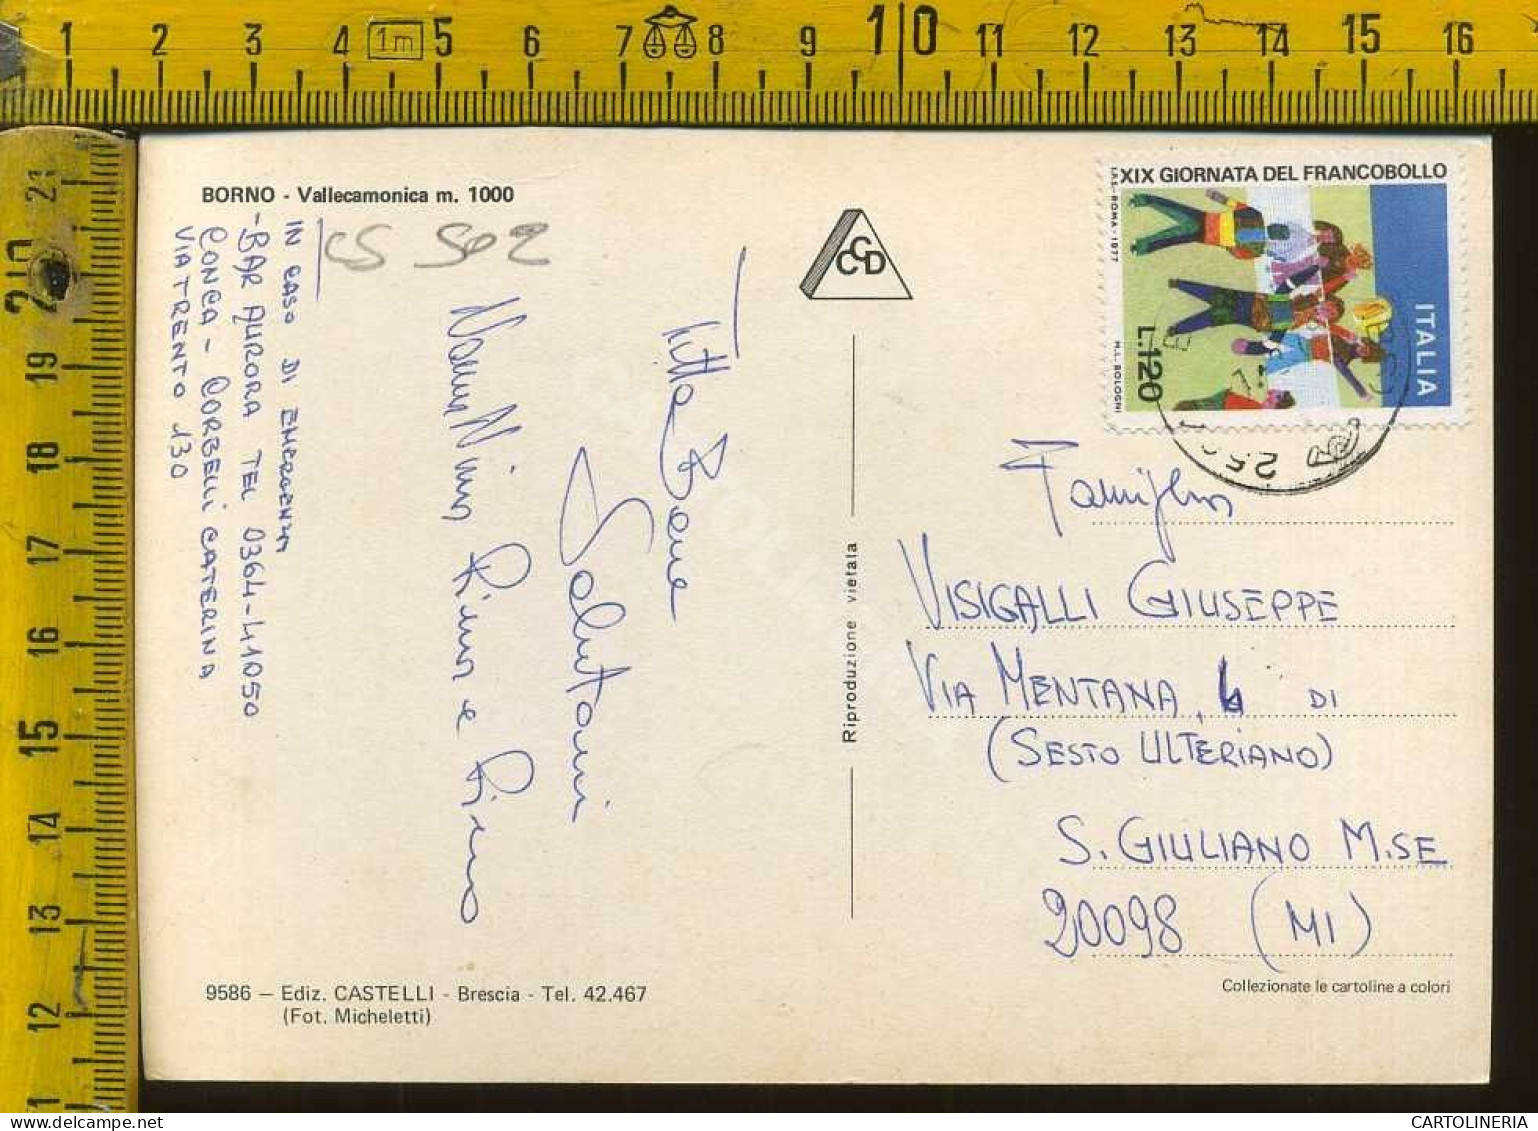 1 2 3 4 1m 5 6 7 8 9 10 11 12 13 14 15 16
21
20
19
18
17
16
15
14
13
12
11
BORNO - Vallecamonica m. 1000
CS 502
IN CASO DI EMERGENZA
- BAR AURORA TEL 0364-41050
CONCA - CORBELLI CATERINA
VIA TRENTO 130
Tutto Bene
Salutoni
Rino
9586 — Ediz. CASTELLI - Brescia - Tel. 42.467
(Fot. Micheletti)
CCD
Riproduzione vietata
XIX GIORNATA DEL FRANCOBOLLO
I.P.S.-ROMA-1977
M.L. BOLOGNI
L.120
ITALIA
Famiglia
VISIGALLI GIUSEPPE
VIA MENTANA, 4 DI
(SESTO ULTERIANO)
S. GIULIANO M.SE
20098 (MI)
Collezionate le cartoline a colori
CARTOLINERIA